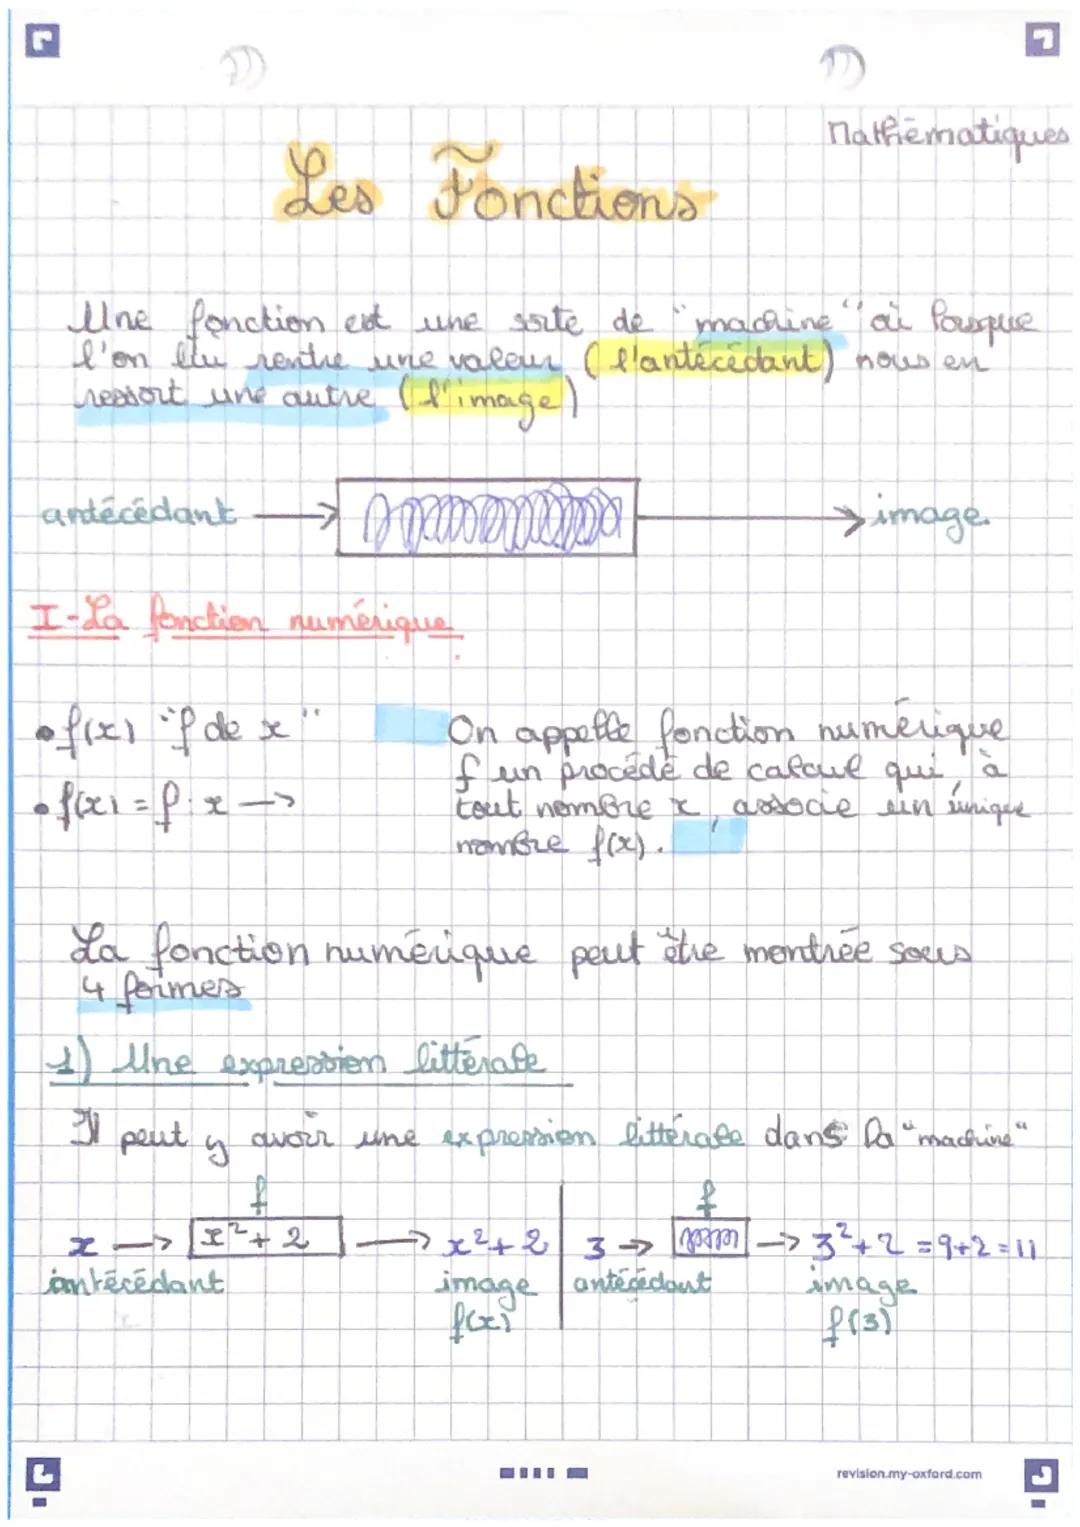 Mathématiques
Les Fonctions
Une fonction est une sorte de "machine" où lorsque
l'on lui rentre une valeur (l'antécédant) nous en
ressort une autre (l'image)
antécédant → → image
I-La fonction numérique
• f(x) "f de x"
• f(x) = f: x →
On appelle fonction numérique
f un procédé de calcul qui, à
tout nombre x, associe un unique
nombre f(x).
La fonction numérique peut être montrée sous
4 formes
1) Une expression littérale
Il peut y avoir une expression littérale dans la "machine"
f f
x → x²+2 → x²+2 3 → → 3²+2 = 9+2 = 11
antécédant image antécédant image
f(x) f(3)
revision.my-oxford.com